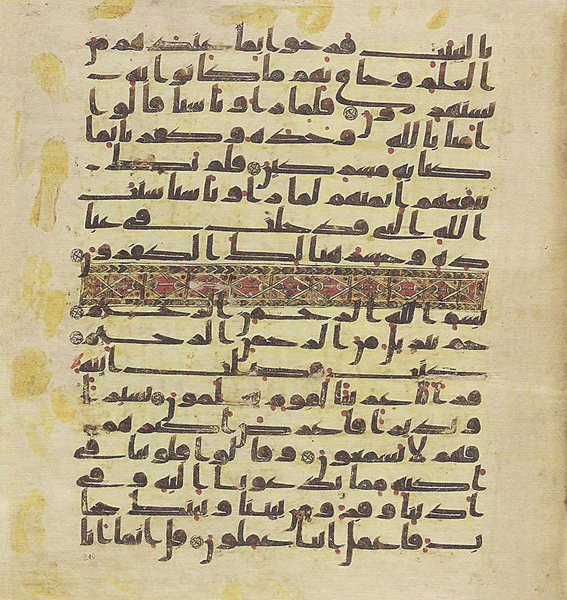 بالبينت فرحوا بما عندهم من
العلم وحاق بهم ما كانوا به
يستهزون فلما راوا باسنا قالوا
امنا بالله وحده وكفرنا بما
كنا به مشركين فلم يك
ينفعهم ايمنهم لما راوا باسنا سنت
الله التي قد خلت في عبا
ده وخسر هنالك الكفرون
بسم الله الرحمن الرحيم
حم تنزيل من الرحمن الرحيم
كتب فصلت ايته
قرانا عربيا لقوم يعلمون بشيرا
ونذيرا فاعرض اكثرهم
فهم لا يسمعون وقالوا قلوبنا في
اكنه مما تدعونا اليه وفي
اذننا وقر ومن بيننا وبينك حجا
ب فاعمل اننا عملون قل انما انا